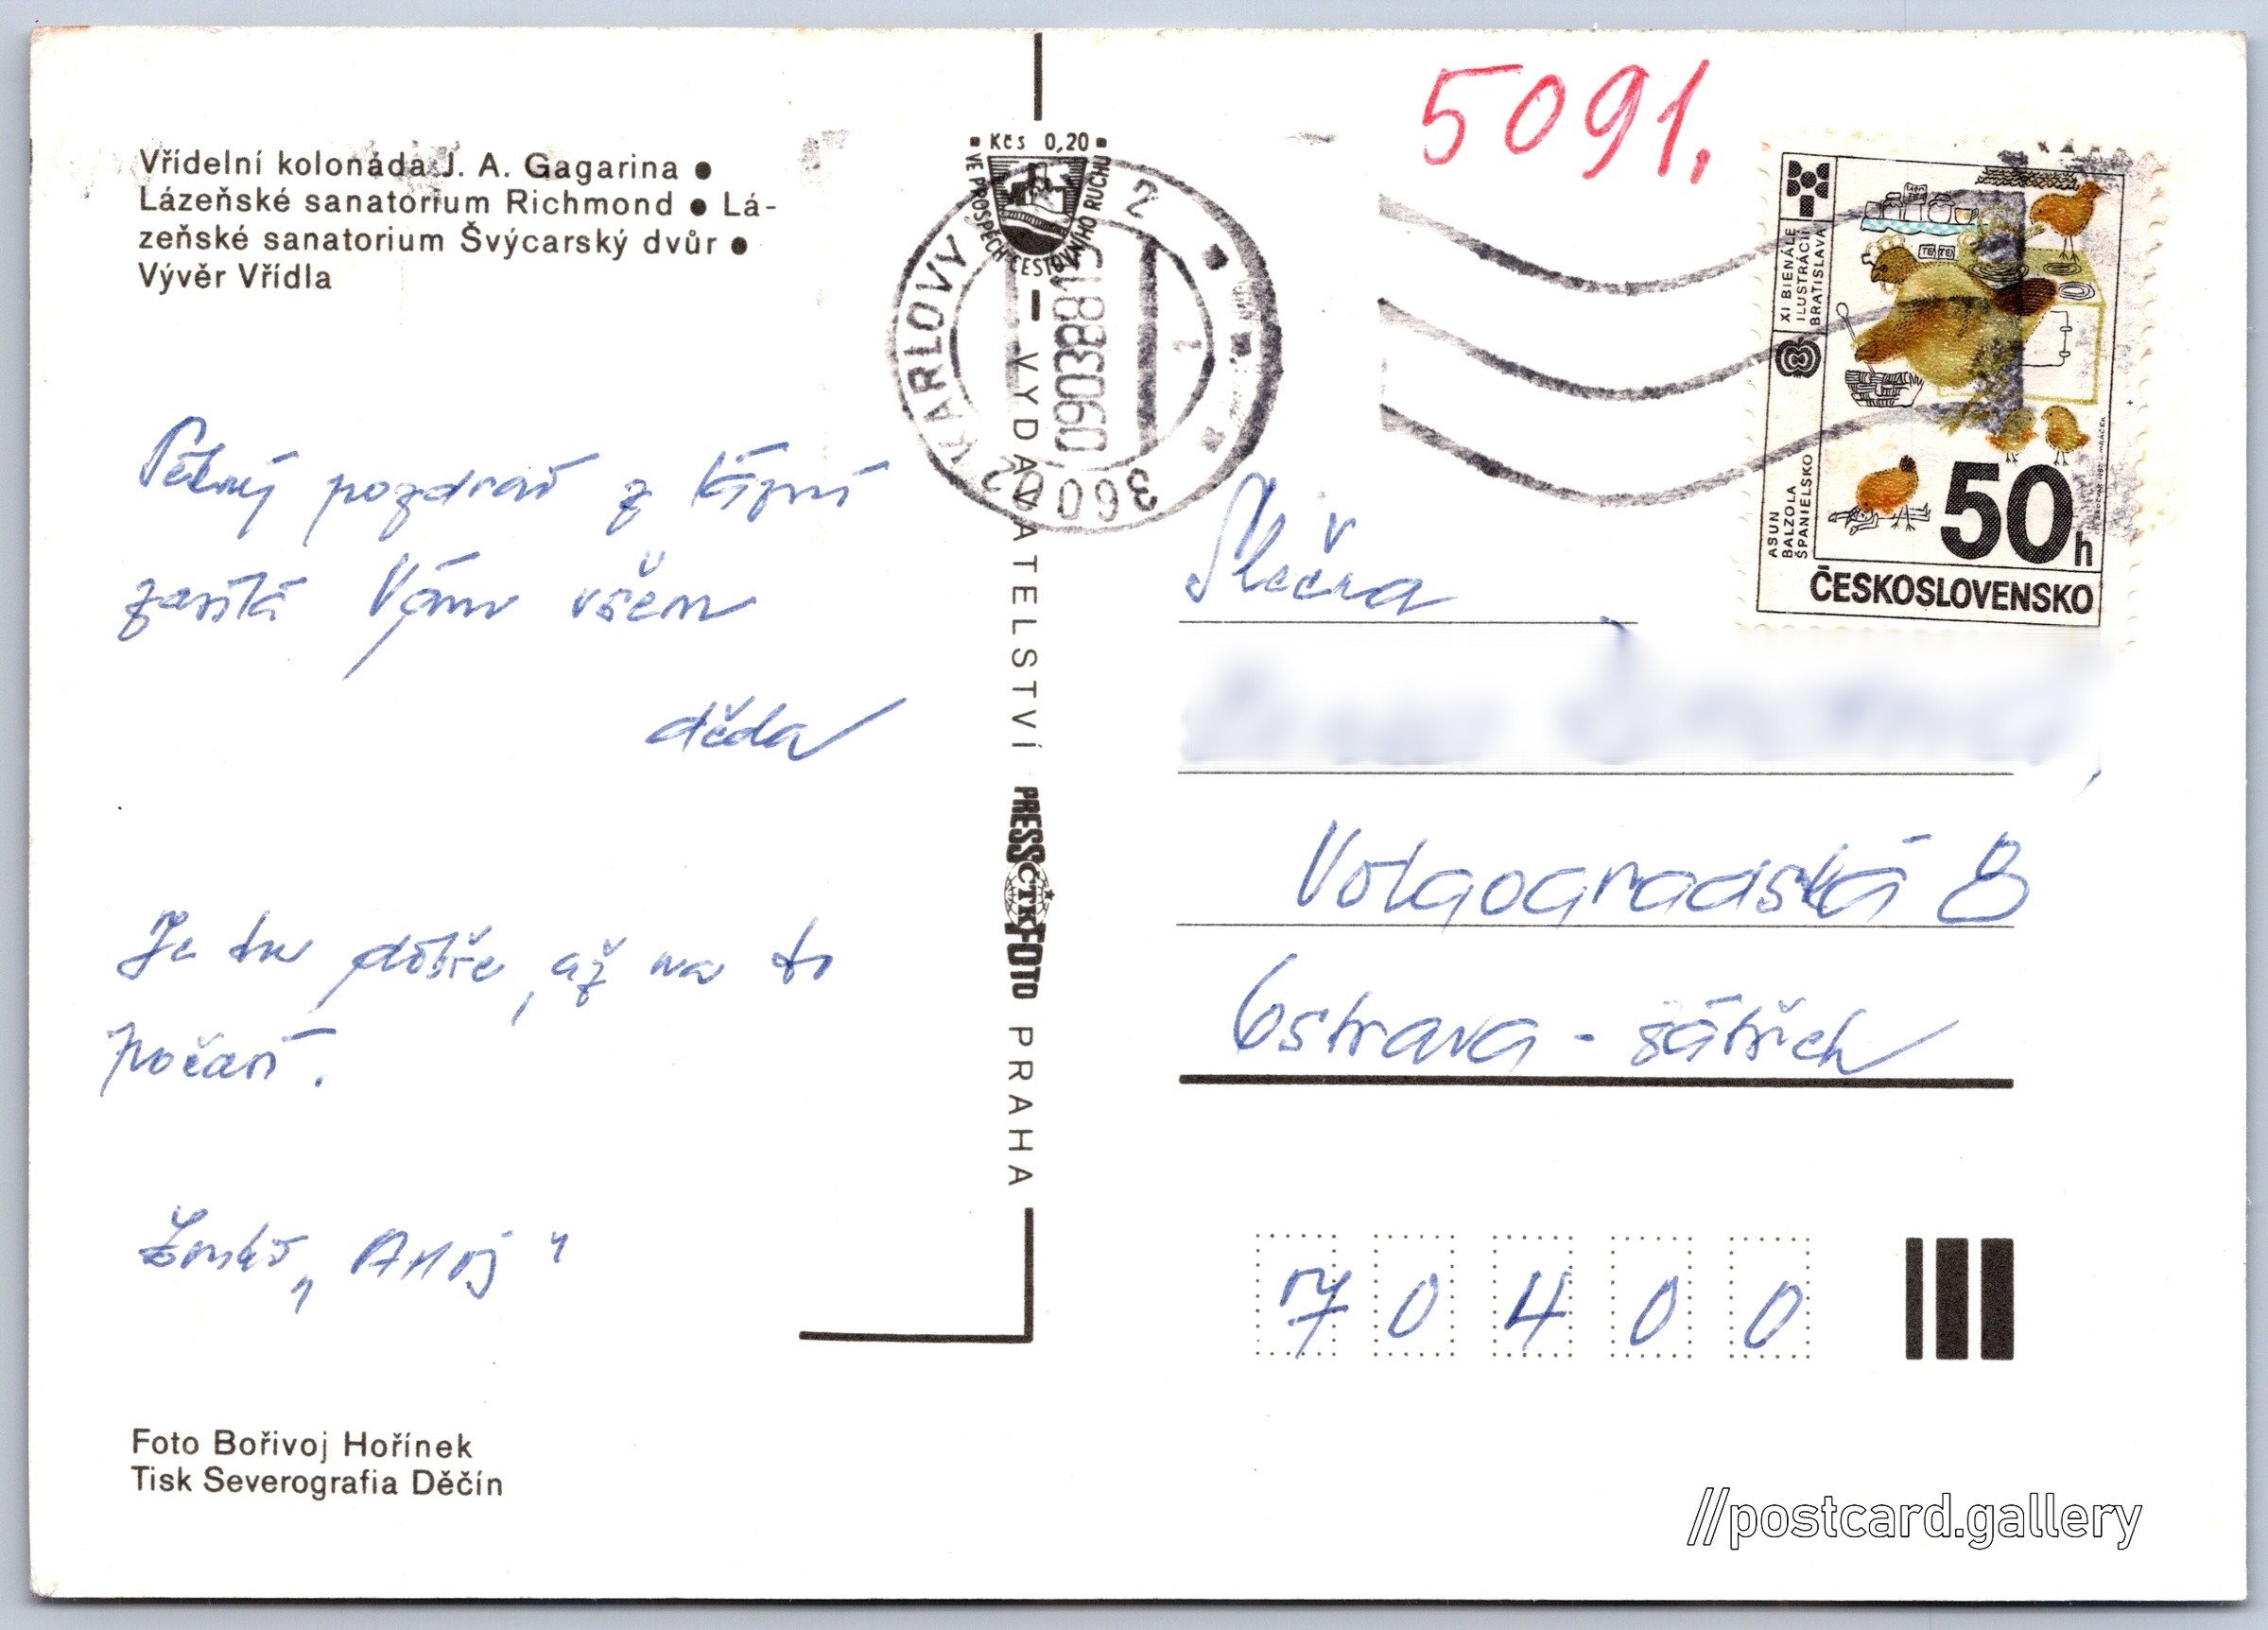 Vřídelní kolonáda J. A. Gagarina ●
Lázeňské sanatorium Richmond ● Lá-
zeňské sanatorium Švýcarský dvůr ●
Vývěr Vřídla
Pěkný pozdrav z lázní
zasílá Vám všem
děda
Je tu dobře, až na to
počasí.
„Ahoj“
Foto Bořivoj Hořínek
Tisk Severografia Děčín
Kčs 0,20
VE PROSPĚCH CESTOVNÍHO RUCHU
KARLOVY
2
36002
VYDAVATELSTVÍ PRESSČTKFOTO PRAHA
5091.
XI BIENÁLE
ILUSTRÁCIÍ
BRATISLAVA
ASUN
BALZOLA
ŠPANIELSKO
50h
ČESKOSLOVENSKO
Slečna
Volgogradská 8
Ostrava - Zábřeh
70400
//postcard.gallery